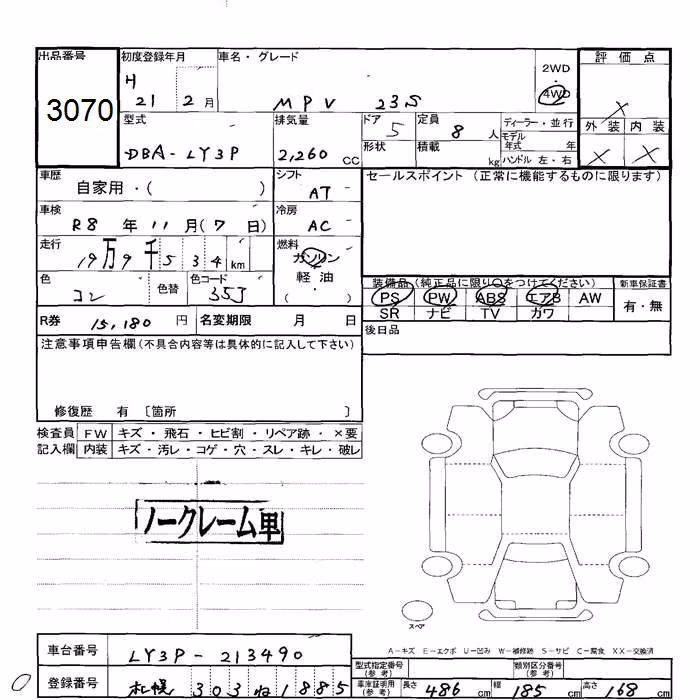 出品番号 初度登録年月 車名・グレード 2WD 評価点
3070 H 21 2月 MPV 23S 4WD X
型式 排気量 ドア 5 定員 8 人 ディーラー・並行 外装 内装
形状 積載 kg モデル年式 年
DBA-LY3P 2,260 CC ハンドル 左・右 X X
車歴 自家用・( ) シフト AT セールスポイント (正常に機能するものに限ります)
車検 R8 年 11 月(7 日) 冷房 AC
走行 19万9千534km 燃料 ガソリン
軽油
( ・ )
色 コン 色替 色コード 35J 装備品(純正品に限り○をつけてください) 新車保証書
PS PW ABS エアB AW 有・無
SR ナビ TV カワ
R券 15,180 円 名変期限 月 日 後日品
注意事項申告欄(不具合内容等は具体的に記入して下さい)
修復歴 有 〔箇所 〕
検査員 FW キズ・飛石・ヒビ割・リペア跡・×要
記入欄 内装 キズ・汚レ・コゲ・穴・スレ・キレ・破レ
ノークレーム車
スペア
A-キズ E-エクボ U-凹み W-補修跡 S-サビ C-腐食 XX-交換済
車台番号 LY3P-213490 型式指定番号(参考) 類別区分番号(参考)
登録番号 札幌 303 ね1885 車庫証明用(参考) 長さ 486 cm 幅 185 cm 高さ 168 cm